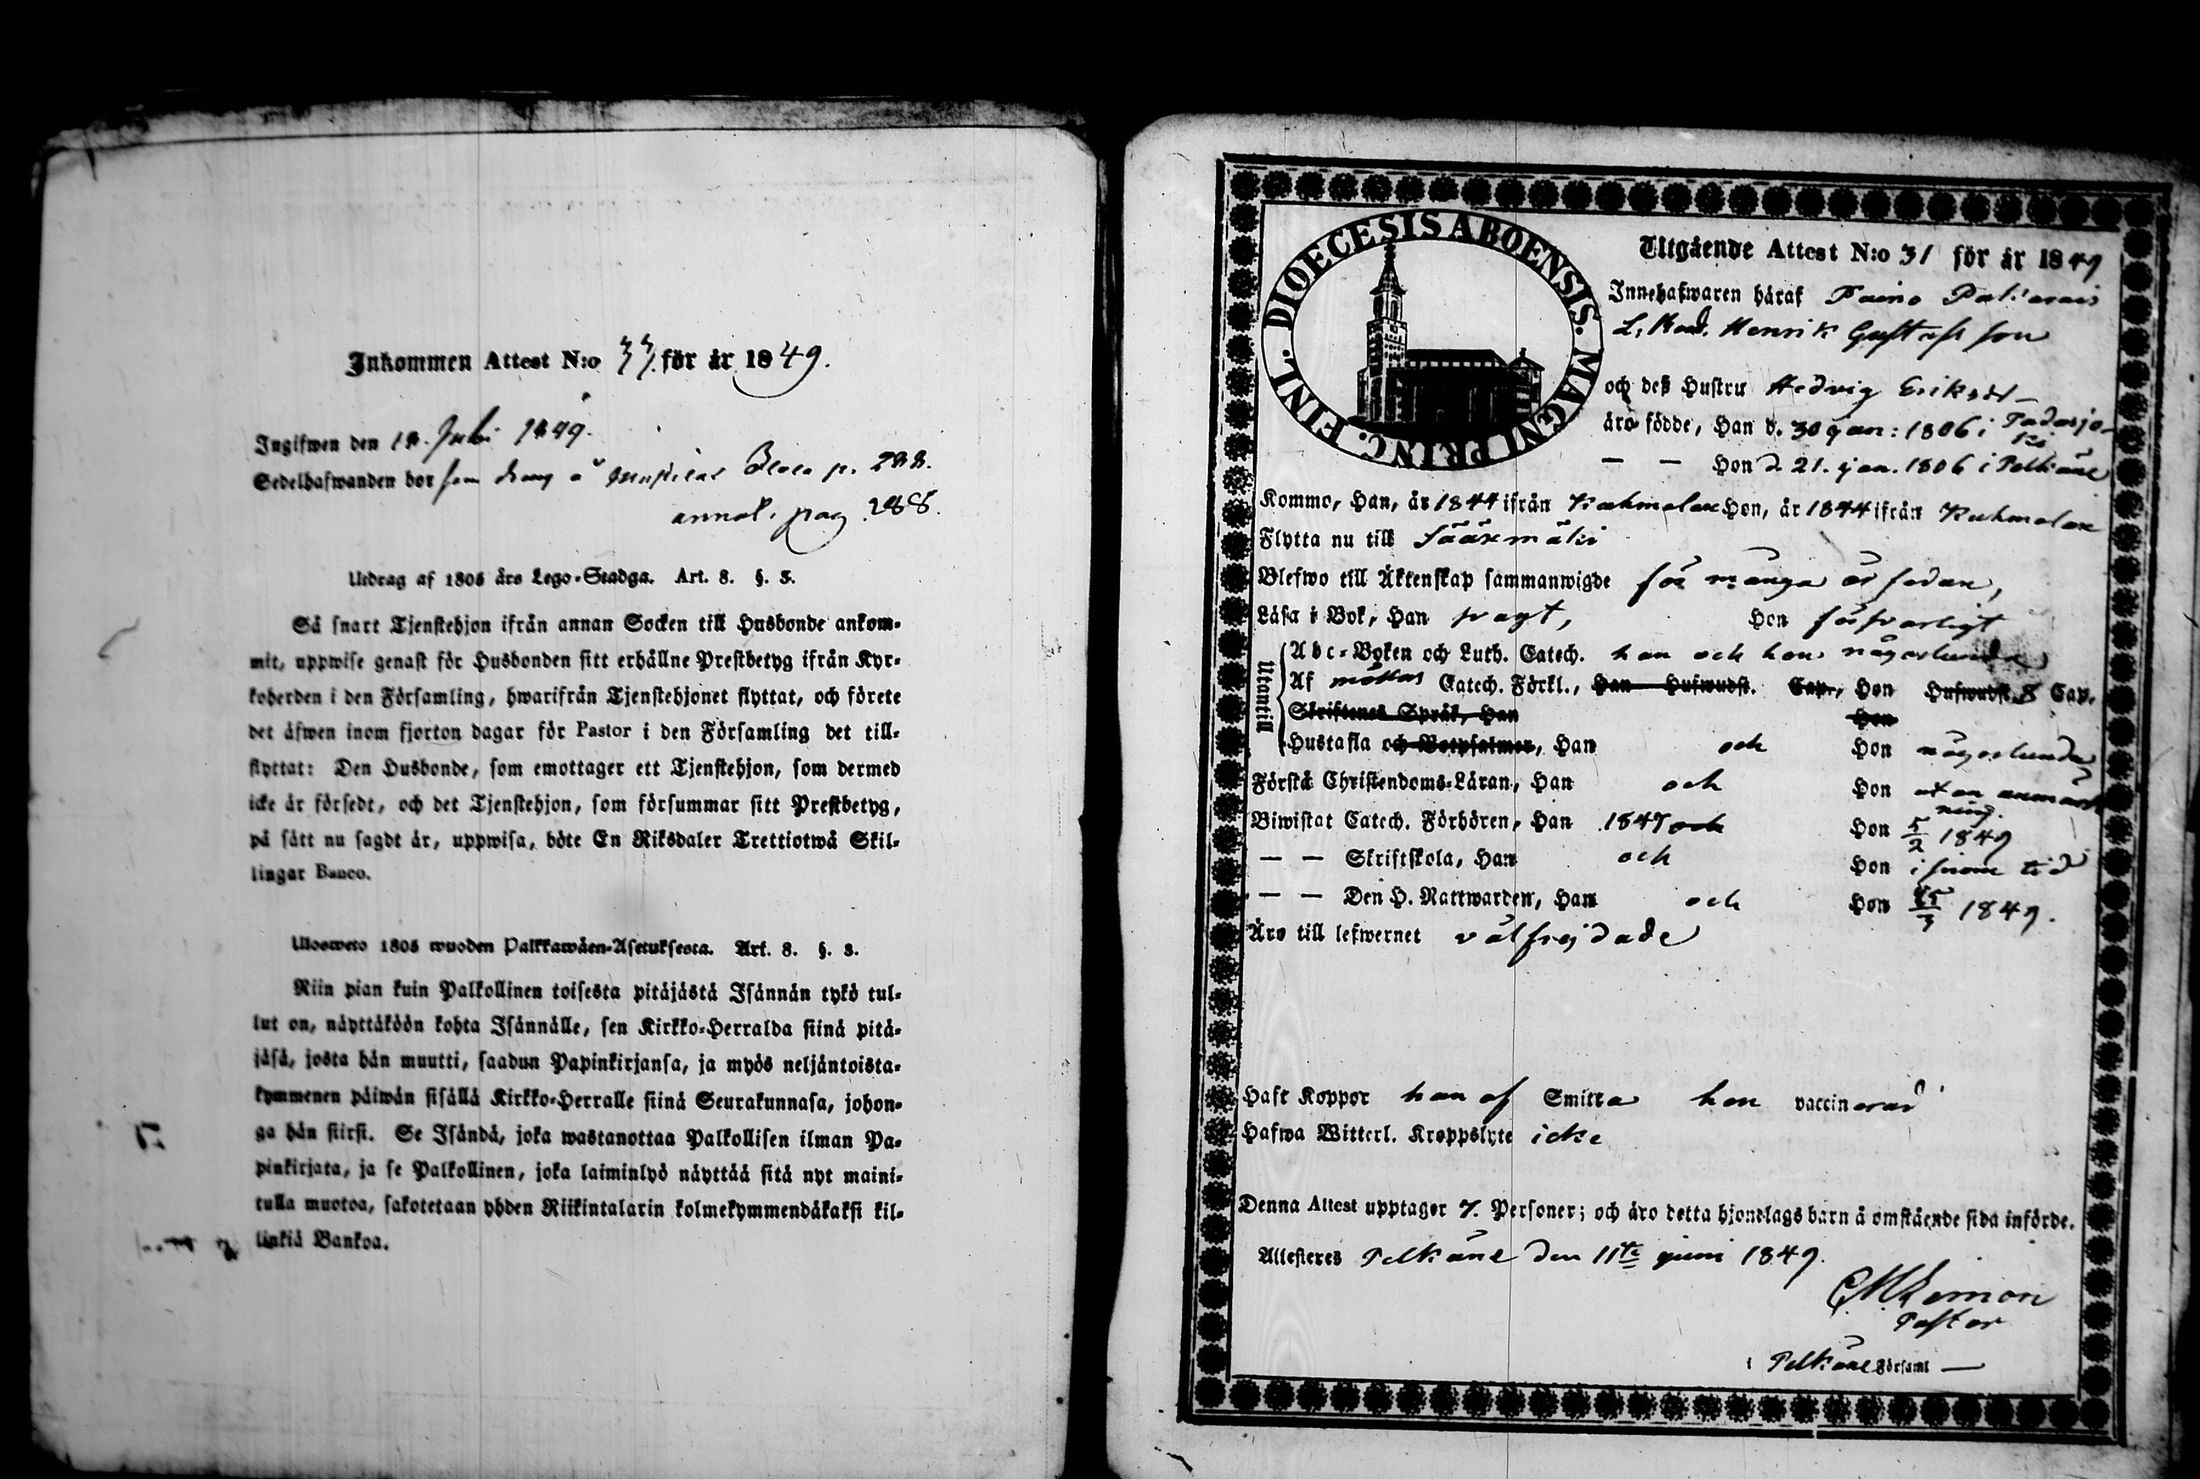 Inkommen Attest N:o 33 för år 1849.
Ingifwen den 14. Juli 1849.
Sedelhafwanden bor som dräng å p. 288.
annot. pag. 288.
Utdrag af 1805 års Lego-Stadga. Art. 8. §. 3.
Så snart Tjenstehjon ifrån annan Socken till Husbonde ankom-
mit, uppwise genast för Husbonden sitt erhållne Prestbetyg ifrån Kyr-
koherden i den Församling, hwarifrån Tjenstehjonet flyttat, och förete
det äfwen inom fjorton dagar för Pastor i den Församling det till-
flyttat: Den Husbonde, som emottager ett Tjenstehjon, som dermed
icke är försedt, och det Tjenstehjon, som försummar sitt Prestbetyg,
på sätt nu sagdt är, uppwisa, böte En Riksdaler Trettiotwå Skil-
lingar Banco.
Ulosweto 1805 wuoden Palkkawäen-Asetuksesta. Art. 8. §. 3.
Niin pian kuin Palkollinen toisesta pitäjästä Isännän tykö tul-
lut on, näyttäköön kohta Isännälle, sen Kirkko-Herralda siinä pitä-
jäsä, josta hän muutti, saadun Papinkirjansa, ja myös neljäntoista-
kymmenen päiwän sisällä Kirkko-Herralle siinä Seurakunnasa, johon-
ga hän siirsi. Se Isändä, joka wastanottaa Palkollisen ilman Pa-
pinkirjata, ja se Palkollinen, joka laiminlyö näyttää sitä nyt maini-
tulla muotoa, sakotetaan yhden Riikintalarin kolmekymmendäkaksi kil-
linkiä Bankoa.
DIOECESIS ABOENSIS. MAGNI PRINC. FINL.
Utgående Attest N:o 31 för år 1849
Innehafwaren häraf
Henrik Gustafsson
och deß Hustru Hedvig Eriksdr
äro födde, Han d. 30 jan: 1806 i
— — Hon d. 21. jan. 1806 i Pelkäne
Kommo, Han, år 1844 ifrån Kuhmalax Hon, år 1844 ifrån Kuhmalax
Flytta nu till Sääxmäki
Blefwo till Äktenskap sammanwigde för många år sedan,
Läsa i Bok, Han swagt, Hon förswarligt
Utantill
Abc-Boken och Luth. Catech. han och hon någorlunda
Af Catech. Förkl., Han Hufwudst. Cap., Hon Hufwudst. 8 Cap.
Skriftenes Språk, Han Hon
Hustafla och Botpsalmer, Han och Hon någorlunda
Förstå Christendoms-Läran, Han och Hon utan anmärk
ning.
Biwistat Catech. Förhören, Han 1847 och Hon 5/2 1849
— — Skriftskola, Han och Hon i sinom tid
— — Den H. Nattwarden, Han och Hon 25/3 1849.
Äro till lefwernet välfrejdade
Haft Koppor han af Smitta hon vaccinerad
Hafwa Witterl. Kroppslyte icke
Denna Attest upptager 7. Personer; och äro detta hjonelags barn å omstående sida införde.
Attesteres Pelkäne den 11te juni 1849.
Pastor
i Pelkäne Församl —